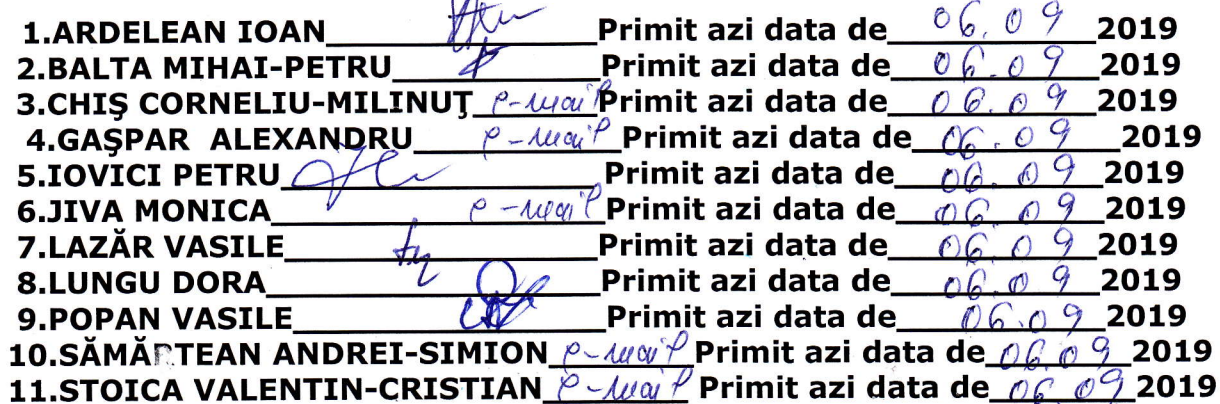 1.ARDELEAN IOAN Primit azi data de 06.09 2019
2.BALTA MIHAI-PETRU Primit azi data de 06.09 2019
3.CHIŞ CORNELIU-MILINUŢ e-mail Primit azi data de 06.09 2019
4.GAŞPAR ALEXANDRU e-mail Primit azi data de 06.09 2019
5.IOVICI PETRU Primit azi data de 06.09 2019
6.JIVA MONICA e-mail Primit azi data de 06.09 2019
7.LAZĂR VASILE Primit azi data de 06.09 2019
8.LUNGU DORA Primit azi data de 06.09 2019
9.POPAN VASILE Primit azi data de 06.09 2019
10.SĂMĂRTEAN ANDREI-SIMION e-mail Primit azi data de 06.09 2019
11.STOICA VALENTIN-CRISTIAN e-mail Primit azi data de 06.09 2019